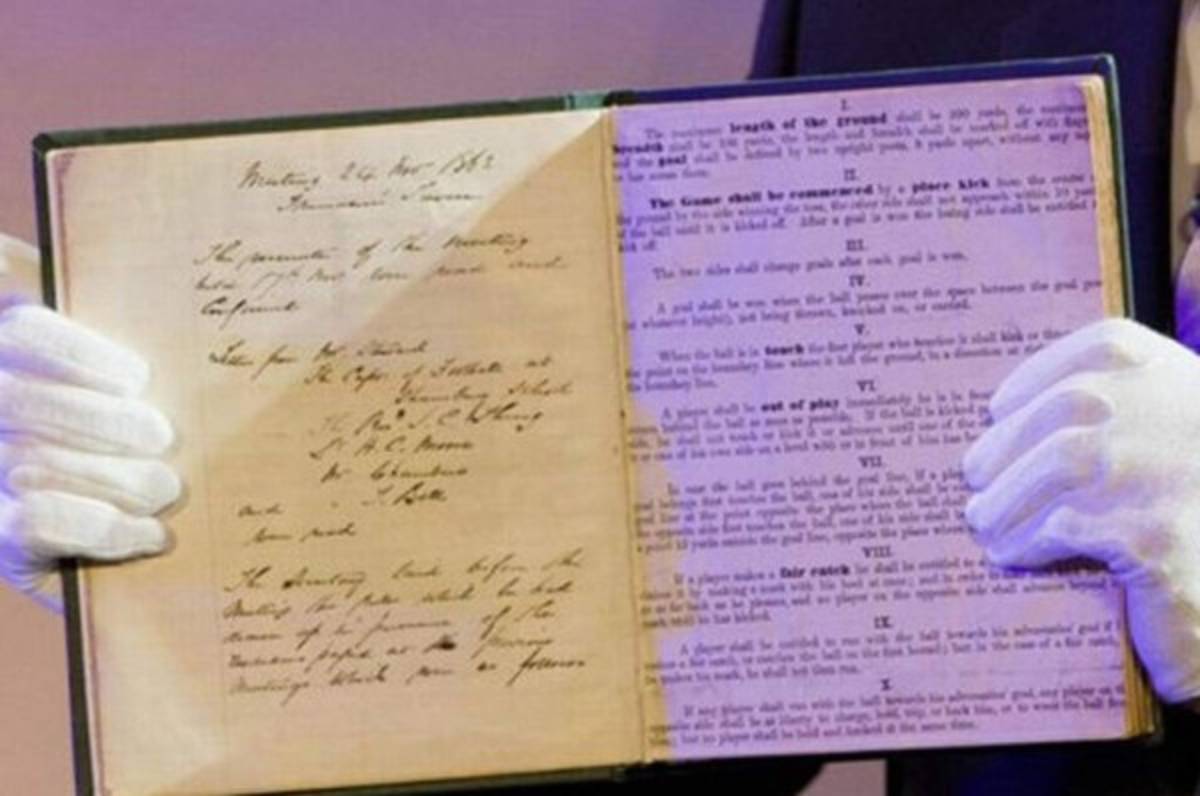 Meeting 24 Nov 1863
The minutes of the Meeting
held 17th Nov were read and
Confirmed
Letter from Mr
The Capt. of Football at
School
The Revd J. C. Thring
H. C. Moore
Mr Chambers
and
were read
The Secretary laid before the
Meeting the which he had
drawn up in pursuance of the
passed at the Previous
Meetings which were as follows
I.
The maximum length of the ground shall be 200 yards, the maximum
breadth shall be 100 yards, the length and breadth shall be marked off with flags
and the goal shall be defined by two upright posts, 8 yards apart, without any
or bar across them.
II.
The Game shall be commenced by a place kick from the centre
the ground by the side winning the toss, the other side shall not approach within 10 yards
of the ball until it is kicked off. After a goal is won the losing side shall be entitled
kick off.
III.
The two sides shall change goals after each goal is won.
IV.
A goal shall be won when the ball passes over the space between the goal
whatever height), not being thrown, knocked on, or carried.
V.
When the ball is in touch the first player who touches it shall kick or
the point on the boundary line where it left the ground, in a direction at
the boundary line.
VI.
A player shall be out of play immediately he is in
behind the ball as soon as possible. If the ball is kicked
side, he shall not touch or kick it or advance until one of the
or one of his own side on a level with or in front of him has
VII.
In case the ball goes behind the goal line, if a
goal belongs first touches the ball, one of his side shall be
goal line at the point opposite the place where the ball shall
the opposite side first touches the ball, one of his side shall be
a point 15 yards outside the goal line, opposite the place where
VIII.
If a player makes a fair catch he shall be entitled to
claims it by making a mark with his heel at once; and in order to
go as far back as he pleases, and no player on the opposite side shall advance beyond
mark until he has kicked.
IX.
A player shall be entitled to run with the ball towards his adversaries' goal if
makes a fair catch, or catches the ball on the first bound; but in the case of a fair catch,
he makes his mark, he shall not then run.
X.
If any player shall run with the ball towards his adversaries' goal, any player on
opposite side shall be at liberty to charge, hold, trip, or hack him, or to wrest the ball from
him; but no player shall be held and hacked at the same time.